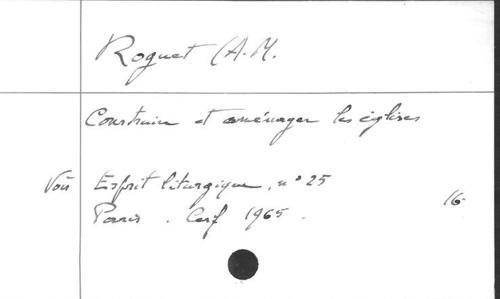 Roguet (A.M.
Construire et aménager les églises
Voir Esprit liturgique, n° 25
Paris. Cerf 1965.
16-